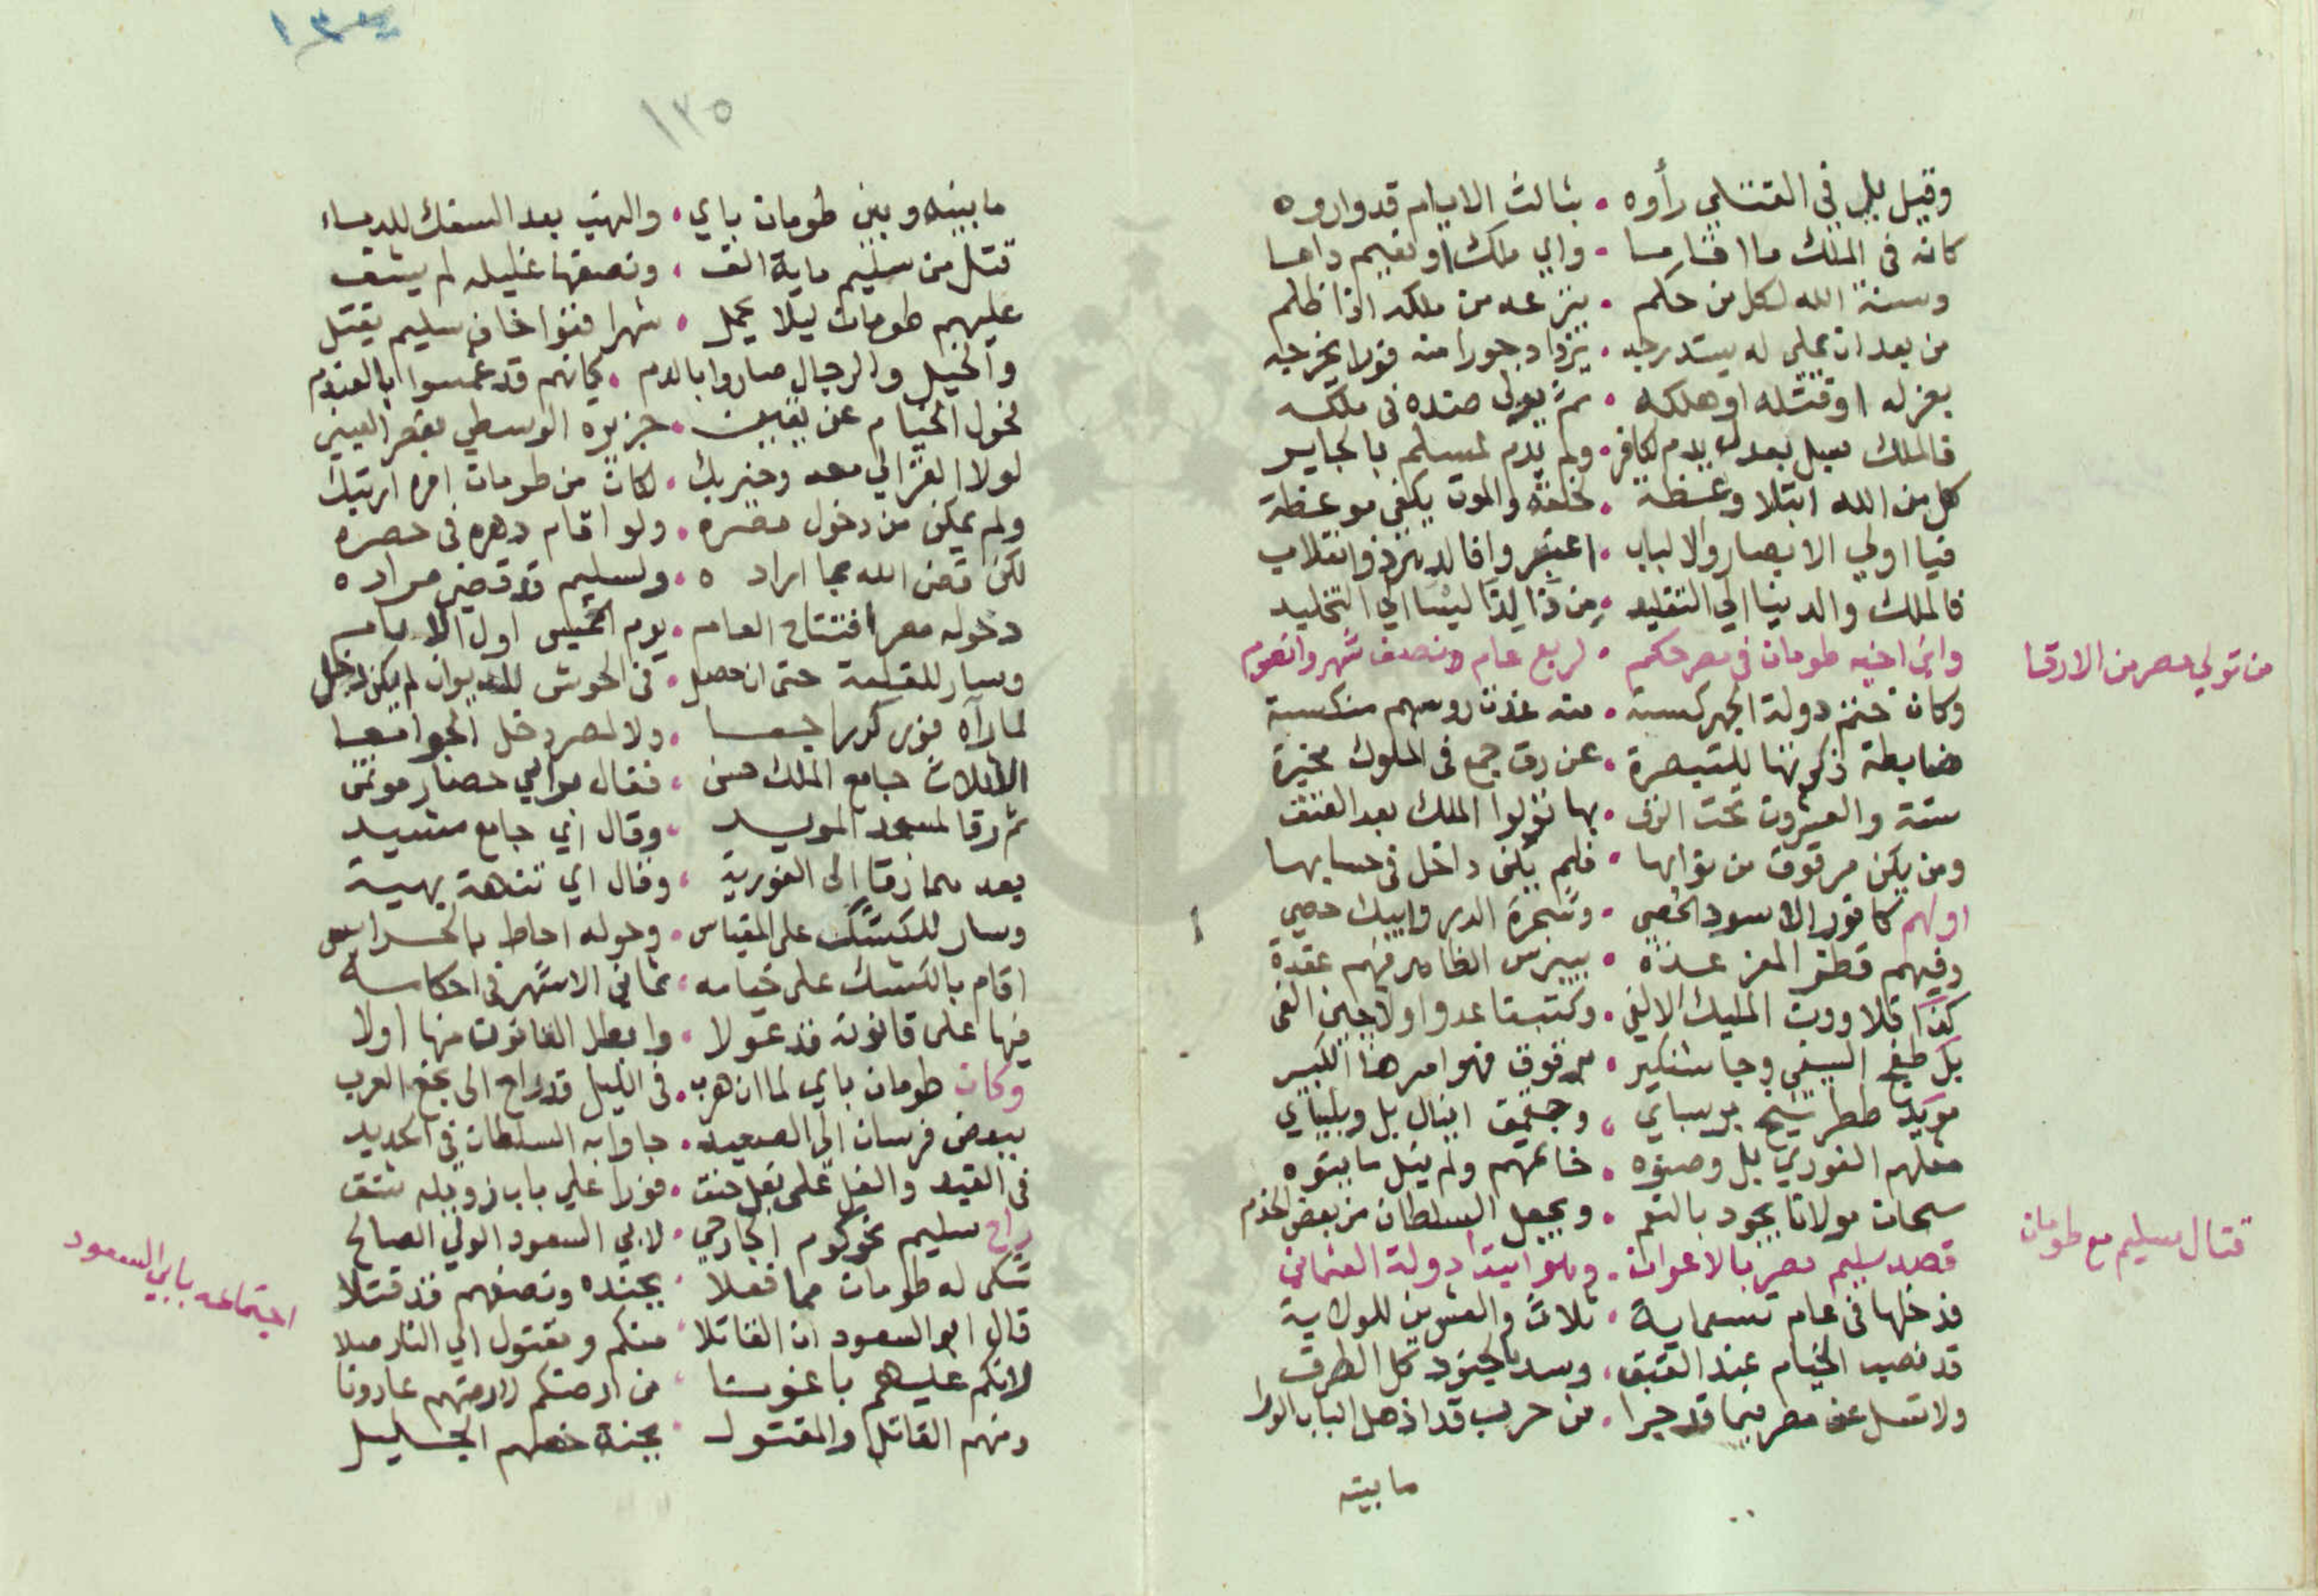 وقيل بل في القتلي رأوه • بثالث الايام قد واروه
كانه في الملك ما اقام ما • واي ملك او نعيم داما
وسنة الله لكل من حكم • ينزعه من ملكه اذا ظلم
من بعد ان يملي له يستدرجه • يزداد جورا منه فورا يخرجه
بعزله او قتله او هلكه • ثم يولي ضده في ملكه
فالملك بعدل يدم لكافر • ولم يدم لمسلم بالجاير
كل من الله ابتلا وعظة • خلقه والموت يكفي موعظة
فيا اولي الابصار والالباب • اعتبروا فالدهر ذو انقلاب
فالملك والدنيا الي التقليد • من ذا لذا ليسا الي التخليد
وابن اخيه طومان في مصر حكم • لربع عام ونصف شهر وانصرم
من تولي مصر من الارقا
وكان ختم دولة الجركسة • منه غدت روسهم منكسة
ضابطة ذكرتها للتبصرة • عن رق جمع في الملوك مخبرة
ستة والعشرون تحت الرق • بها تولوا الملك بعد العتق
ومن يكن مرقوق من توابها • فلم يكن داخل في حسابها
اولهم كافور الاسود الخصي • وشجرة الدر وايبك حصي
وفيهم قطز المعز عده • بيبرس الظاهر فهم عقدة
كذا قلاوون المليك الالفي • وكتبغا عدوا ولاجين الفي
بل طفج السيفي وجاشنكير • برقوق فهو امرها الكبير
مويد ططر شيخ برسباي • وجقمق اينال بل وبلباي
مثلهم الغوري بل وصنوه • خاتمهم ولم ينل ما بنوه
سبحان مولانا يجود بالنعم • ويجعل السلطان من بعض الخدم
قصد سليم مصر بالاعوان • وهو ابتدا دولة العثماني
قتال سليم مع طومان
فدخلها في عام تسعماية • ثلاث والعشرين للولاية
قد نصب الخيام عند القبق • وسد بالجنود كل الطرق
ولا تسل عن مصر فيما قد جرا • من حرب قد اذهل الباب الورا
ما بينه
١٣٥
ما بينه وبين طومان باي • والنهب بعد السفك للدماء
قتل من سليم ماية الف • ونصفها غليله لم يشف
عليهم طومان ليلا يحمل • شهرا فنوا خاف سليم يقتل
والخيل والرجال صاروا بالدم • كانهم قد غمسوا بالعندم
نحول الخيام عن يقين • جزيرة الوسطي بقصر العيني
لولا الغزالي معه وخيربك • لكان من طومان امره ارتبك
ولم يمكن من دخول مصره • ولو اقام دهره في حصره
لكن قضي الله بما اراده • ولسليم قد قضي مراده
دخوله مصر افتتاح العام • يوم الخميس اول الايام
وسار للقلعة حتى ان حصل • في الحوش للديوان لم يكن دخل
لما رآه فورا كر راجعا • ولا لمصر دخل الجوامعا
الا ثلاث جامع الملك حسن • فقال هو الي حصار موتمن
ثم رقا لمسجد المويد • وقال اني جامع مشيد
بعد هما رقا الى الغورية • وقال اي تنتهة بهية
وسار للكشك على المقياس • وحوله احاط بالحراس
اقام بالكشك على خيامه • ثماني الاشهر في احكامه
فيها على قانونه قد عولا • وابطل القانون منها اولا
وكان طومان باي لما ان هرب • في الليل قد راح الى نجع العرب
ببعض فرسان الي الصعيد • جاوا به السلطان في الحديد
في القيد والغل على بغل خنق • فورا علي باب زويله شنق
راح سليم نحو كوم الجارحي • لابي السعود الولي الصالح
شكى له طومان مما فعلا • بجنده ونصفهم قد قتلا
اجتماعه بابي السعود
قال ابو السعود ان القاتلا • منكم ومقتول الي النار صلا
لانكم عليهم باغونا • من ارضكم لارضهم عادونا
ومنهم القاتل والمقتول • بجنة خصهم الجليل